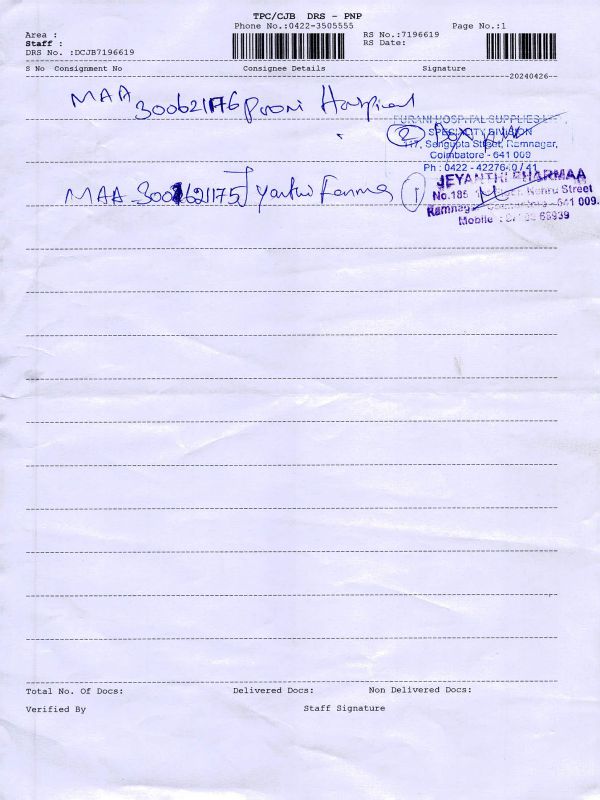 TPC/CJB DRS - PNP
Phone No.:0422-3505555
Page No.:1
Area :
RS No.:7196619
Staff :
RS Date:
DRS No. :DCJB7196619
S No Consignment No Consignee Details Signature
20240426
MAA 300621176 Hospital
PURANI HOSPITAL SUPPLIES
2
SPECIALITY DIVISION
117, Sengupta Street, Ramnagar,
Coimbatore - 641 009
Ph : 0422 - 42276 0 / 41
MAA 300621175 Farma
1
JEYANTHI PHARMAA
No.185 Nehru Street
Ramnagar Coimbatore - 641 009.
Mobile : 66939
Total No. Of Docs: Delivered Docs: Non Delivered Docs:
Verified By Staff Signature